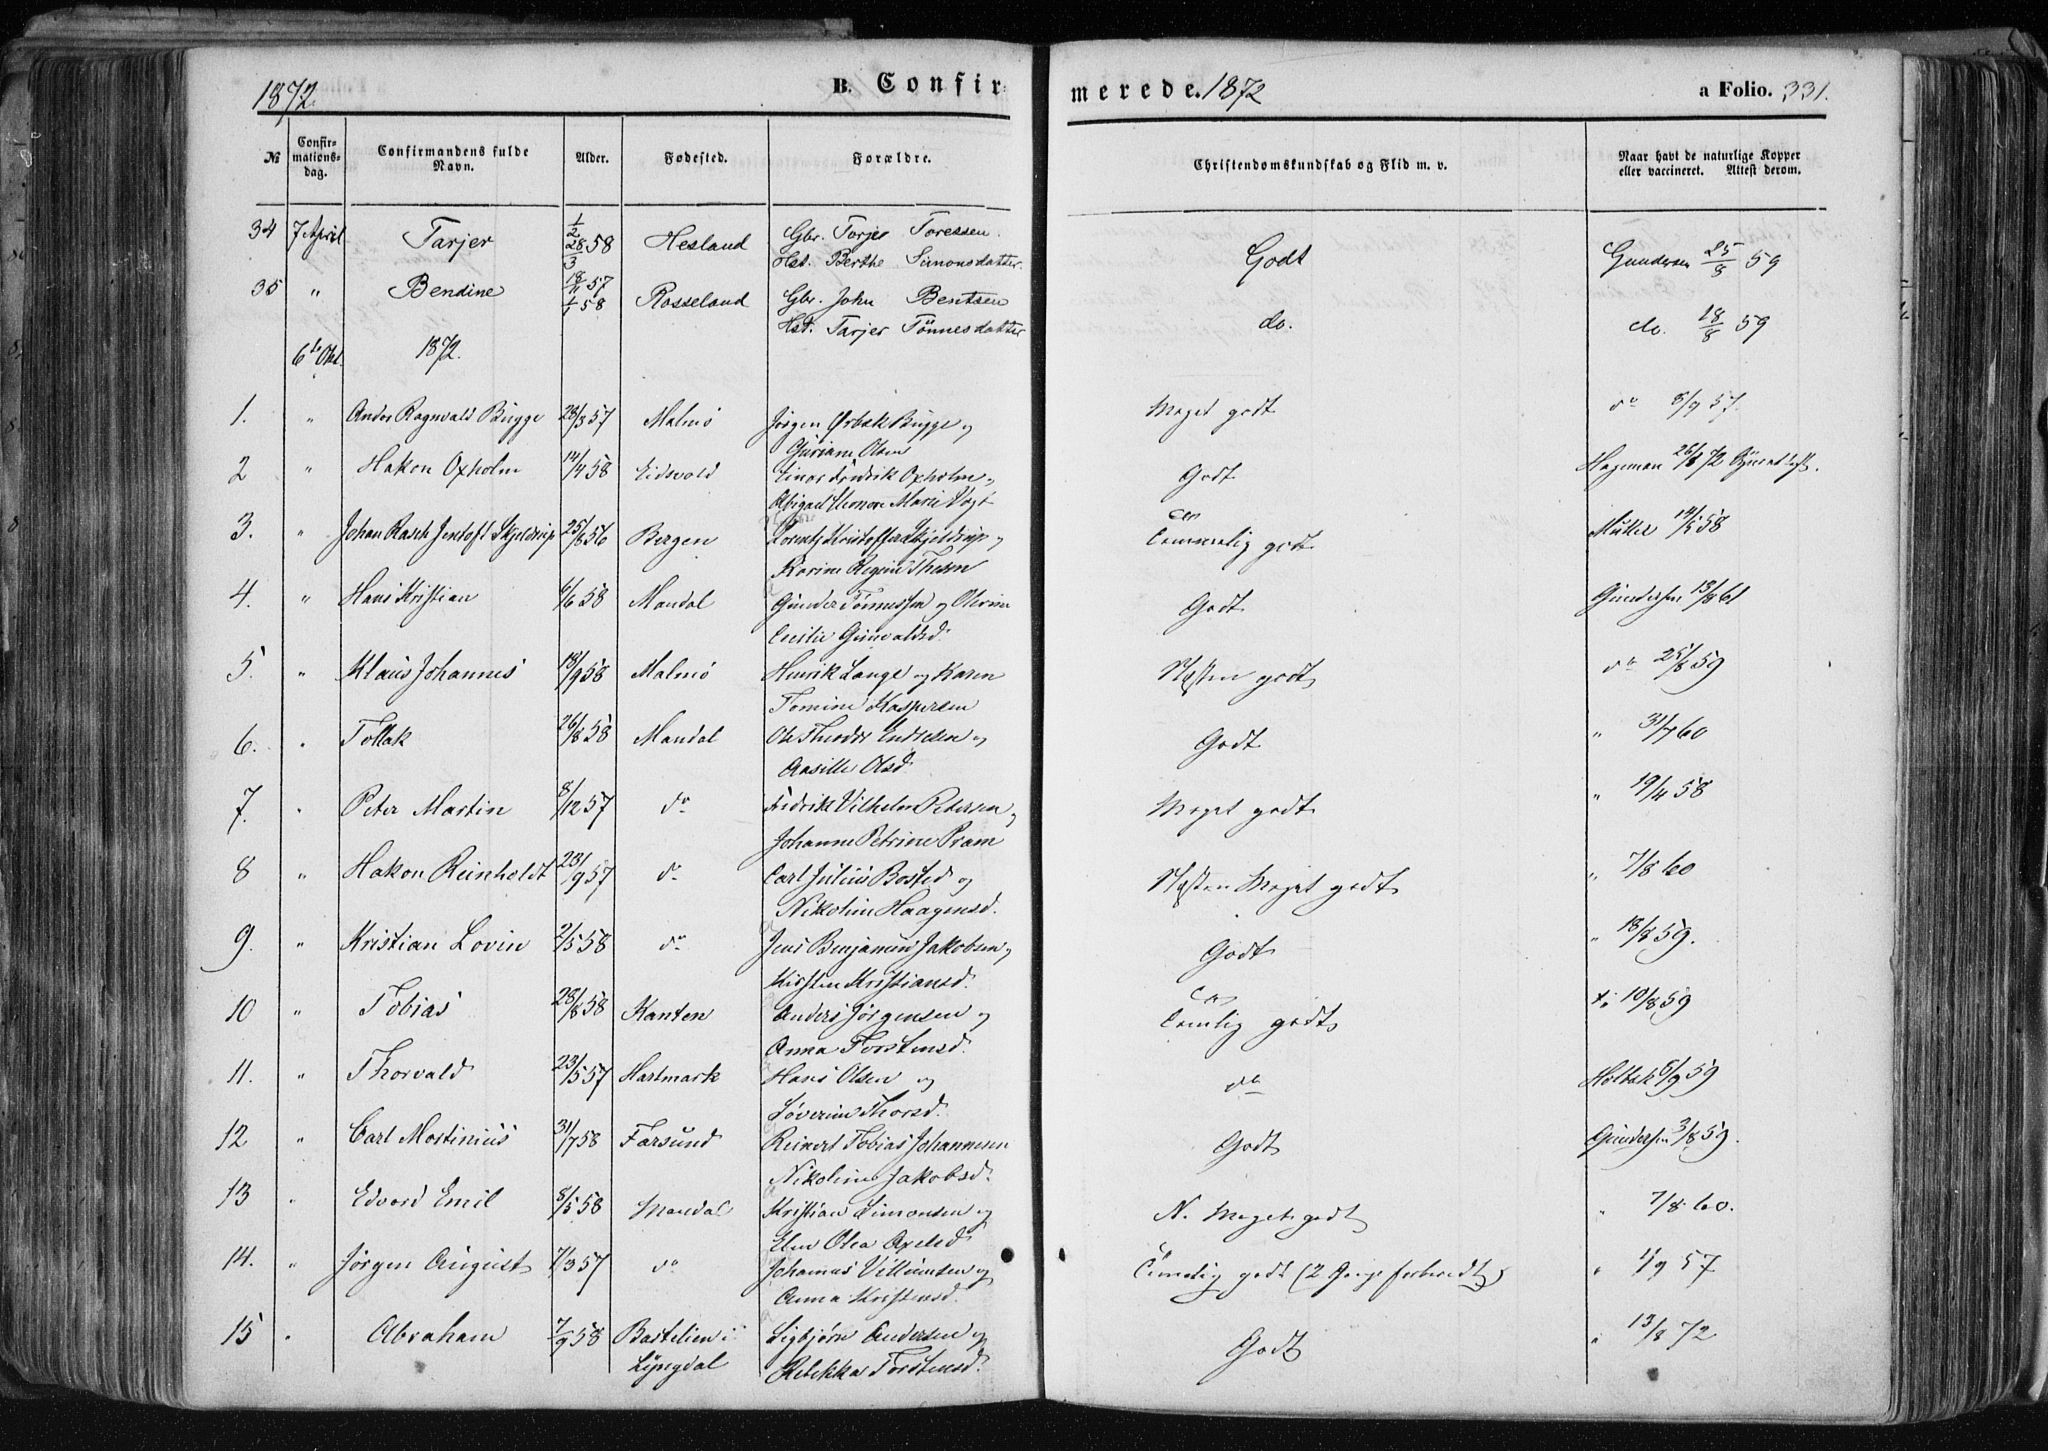 1872. B. Confirmerede. 1872 a Folio. 331.
№ Confirmationsdag. Confirmandens fulde Navn. Alder. Fødested. Forældre. Christendomskundskab og Flid m. v. Naar havt de naturlige Kopper eller vaccineret. Attest derom.
34 7 April Tarjer 1/2 28/3 58 Hesland Gbr. Tarjer Toressen. Godt Gundersen 25/8 59
Hst. Berthe Simonsdatter.
35 " Bendine 18/11 57 1/1 58 Rosseland Gbr. John Bentsen do. do. 18/8 59
Hst. Tarjer Tönnesdatter
6te Okt. 1872.
1. " Anders Ragnvald Bugge 28/3 57 Malmö Jörgen Ørbek Bugge og Meget godt do 8/9 57.
Guriane Olsen
2 " Hakon Oxholm 14/4 58 Eidsvold Einar Fredrik Oxholm og Godt Hageman 26/8 72
Abigael Eleonore Marie Vogt
3. " Johan Rasch Jentoft Skjeldrup 25/8 56 Bergen Lorentz Kristoffer Skjeldrup og Temmelig godt Müller 14/5 58
Karine Regine Thesen
4. " Hans Kristian 6/6 58 Mandal Gunder Tönnessen og Olevine Godt Gundersen 13/8 61
Cecilie Gunvaldsd.
5. " Klaus Johannes 18/9 58 Malmö Henrik Lange og Karen Næsten godt do 25/8 59
Tomine Kaspersen
6. " Tollak 26/8 58 Mandal Ole Theodor Endresen og Godt " 31/7 60
Aasille Olsd.
7. " Peter Martin 8/12 57 do Fredrik Vilhelm Petersen og Meget godt " 19/4 58
Johanne Petrine Pram
8 " Hakon Reinholdt 23/9 57 do Carl Julius Bosted og Næsten Meget godt " 7/8 60
Nikoline Haagensd.
9. " Kristian Lovin 2/5 58 do Jens Benjamin Jakobsen og Godt " 18/8 59.
Kirsten Kristiansd.
10 " Tobias 28/8 58 Kanten Anders Jörgensen og Temlig godt 10/8 59
Anna Torstensd.
11. " Thorvald 23/5 57 Hartmark Hans Olsen og do Holbek 6/9 59
Söverine Thorsd.
12 " Carl Martinius 31/7 58 Farsund Reinert Tobias Johannesen Godt Gundersen 3/8 59.
Nikoline Jakobsd.
13 " Edvard Emil 8/5 58 Mandal Kristian Simonsen og N. Meget godt " 7/8 60.
Elen Olea Axelsd.
14. " Jörgen August 7/3 57 do Johannes Villumsen og Temelig godt (2 Gange forberedt) " 1/9 57
Anna Kristensd.
15 " Abraham 7/9 58 Bastelien i Sigbjörn Andersen og Godt " 13/8 72
Lyngdal Rebekka Torstensd.